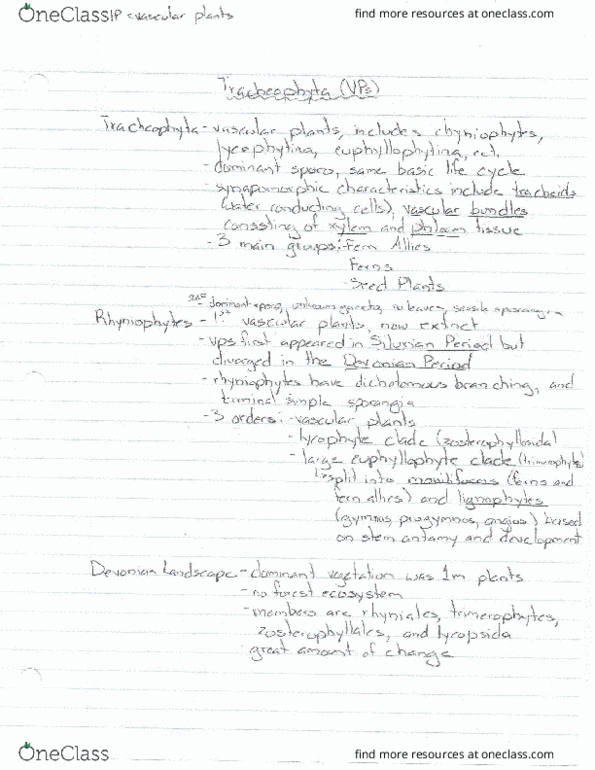 OneClass IP evascular plants
find more resources at oneclass.com
Tracheophyta (VPs)
Tracheophyta - vascular plants, includes rhyniophytes,
lycophytina, euphyllophytina, ect.
- dominant sporo, same basic life cycle
- synapomorphic characteristics include tracheids
(water conducting cells), vascular bundles
consisting of xylem and phloem tissue
- 3 main groups: Fern Allies
Ferns
Seed Plants
dominant sporo, unknown gameto, no leaves, sessile sporangia
Rhyniophytes - 1st vascular plants, now extinct
- vps first appeared in Silurian Period but
diverged in the Devonian Period
- rhyniophytes have dichotomous branching, and
terminal simple sporangia
- 3 orders: - vascular plants
- lycophyte clade (zosterophyllopsida)
- large euphyllophyte clade (trimerophytes)
split into moniliforms (ferns and
fern allies) and lignophytes
(gymnos, progymnos, angios) based
on stem antamy and development
Devonian Landscape - dominant vegetation was 1m plants
- no forest ecosystem
- members are rhyniales, trimerophytes,
zosterophyllales, and lycopsida
great amount of change
OneClass
find more resources at oneclass.com